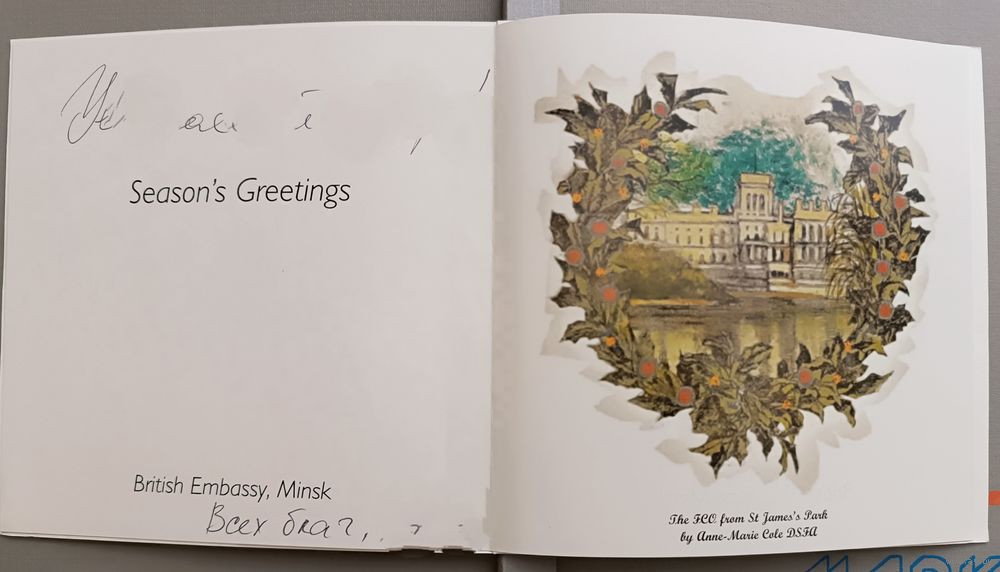 Season's Greetings
British Embassy, Minsk
Всех благ,
The FCO from St James's Park
by Anne-Marie Cole DSFA